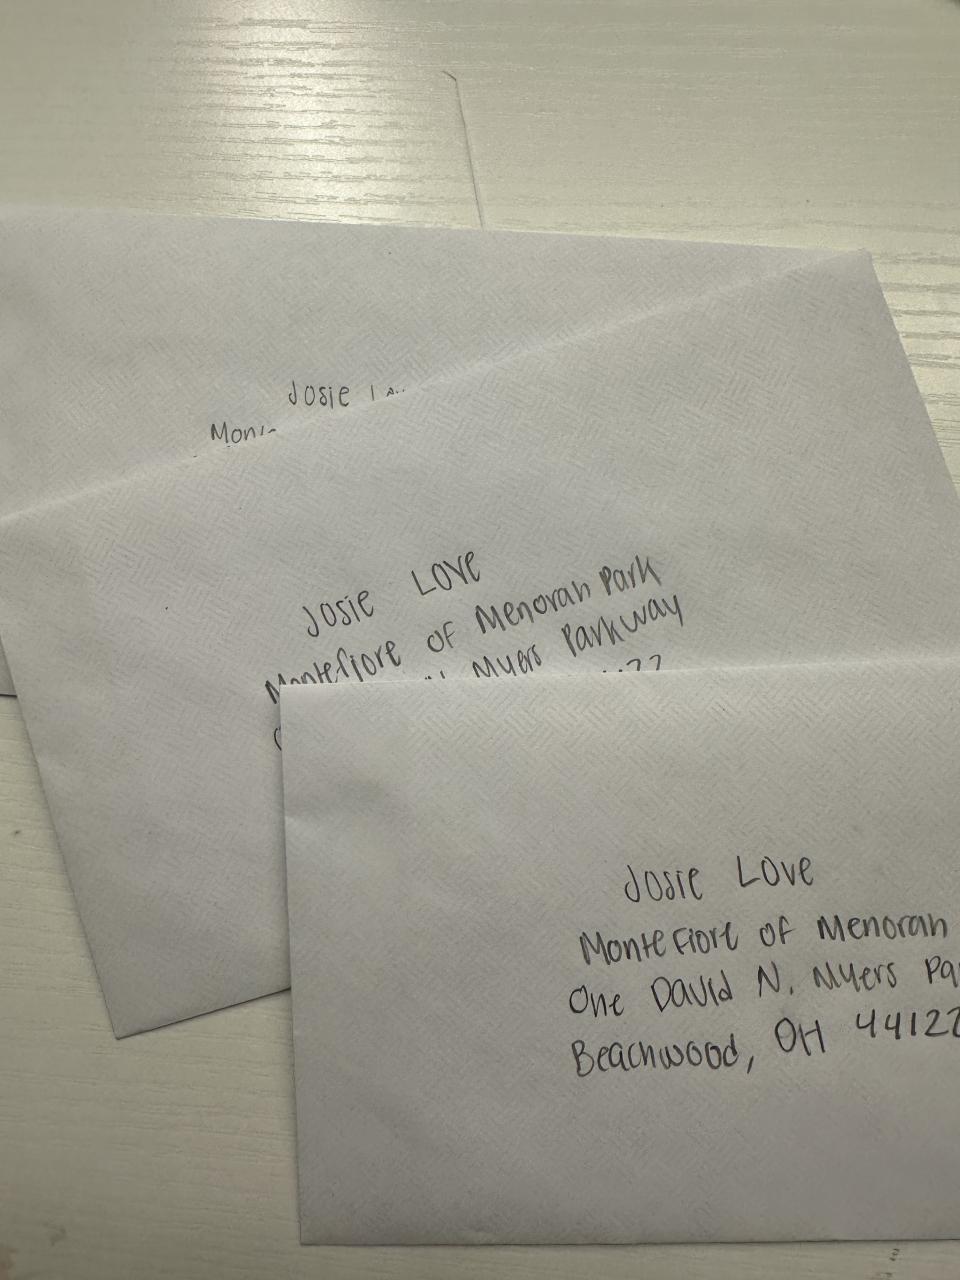 Josie
Josie Love
Montefiore of Menorah Park
Myers Parkway
Josie Love
Montefiore of Menorah
One David N. Myers
Beachwood, OH 44122